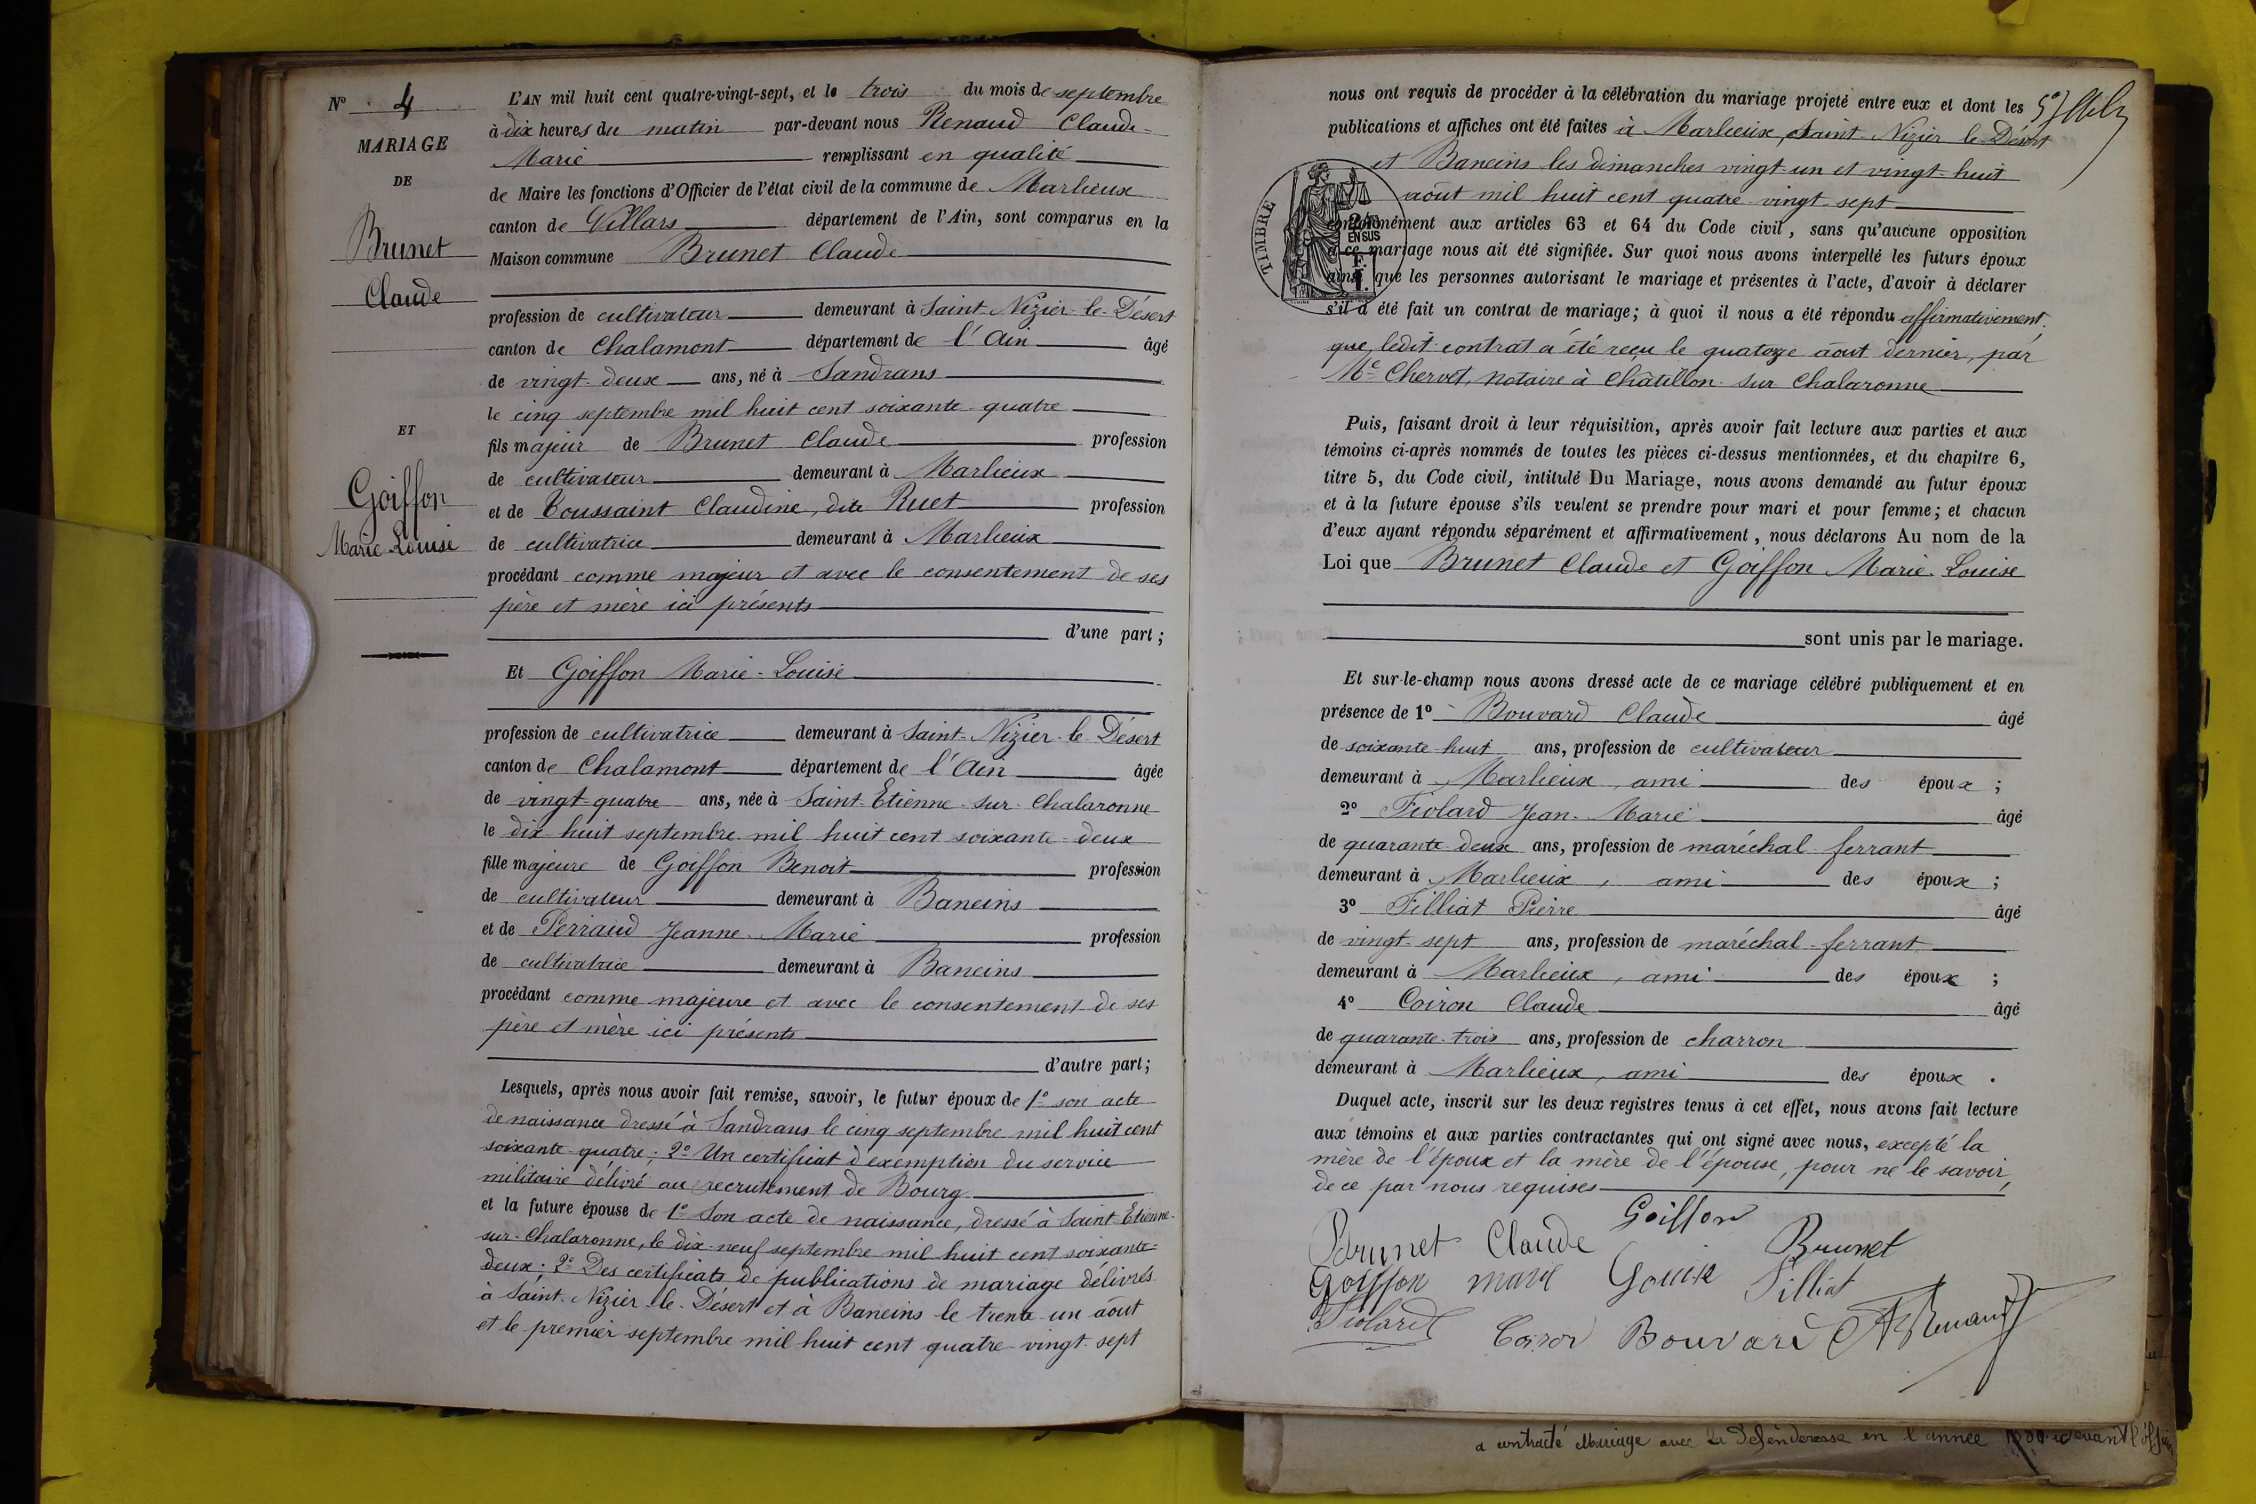 N° 4
MARIAGE
DE
Brunet
Claude
ET
Goiffon
Marie Louise
L'AN mil huit cent quatre-vingt-sept, et le trois du mois de septembre
à dix heures du matin par-devant nous Renaud Claude-
Marie remplissant en qualité
de Maire les fonctions d'Officier de l'état civil de la commune de Marlieux
canton de Villars département de l'Ain, sont comparus en la
Maison commune Brunet Claude
profession de cultivateur demeurant à Saint-Nizier-le-Désert
canton de Chalamont département de l'Ain âgé
de vingt-deux ans, né à Sandrans
le cinq septembre mil huit cent soixante-quatre
fils majeur de Brunet Claude profession
de cultivateur demeurant à Marlieux
et de Toussaint Claudine, dite Ruet profession
de cultivatrice demeurant à Marlieux
procédant comme majeur et avec le consentement de ses
père et mère ici présents
d'une part ;
Et Goiffon Marie-Louise
profession de cultivatrice demeurant à Saint-Nizier-le-Désert
canton de Chalamont département de l'Ain âgée
de vingt-quatre ans, née à Saint-Etienne-sur-Chalaronne
le dix huit septembre mil huit cent soixante-deux
fille majeure de Goiffon Benoit profession
de cultivateur demeurant à Baneins
et de Perraud Jeanne-Marie profession
de cultivatrice demeurant à Baneins
procédant comme majeure et avec le consentement de ses
père et mère ici présents
d'autre part ;
Lesquels, après nous avoir fait remise, savoir, le futur époux de 1° son acte
de naissance dressé à Sandrans le cinq septembre mil huit cent
soixante-quatre ; 2° Un certificat d'exemption du service
militaire délivré au recrutement de Bourg
et la future épouse de 1° Son acte de naissance, dressé à Saint-Etienne-
sur-Chalaronne, le dix-neuf septembre mil huit cent soixante-
deux ; 2° Des certificats de publications de mariage délivrés
à Saint-Nizier-le-Désert et à Baneins le trente-un août
et le premier septembre mil huit cent quatre-vingt-sept
nous ont requis de procéder à la célébration du mariage projeté entre eux et dont les
publications et affiches ont été faites à Marlieux, Saint-Nizier-le-Désert
et Baneins les dimanches vingt-un et vingt-huit
août mil huit cent quatre-vingt-sept
TIMBRE
EN SUS
conformément aux articles 63 et 64 du Code civil, sans qu'aucune opposition
à ce mariage nous ait été signifiée. Sur quoi nous avons interpellé les futurs époux
ainsi que les personnes autorisant le mariage et présentes à l'acte, d'avoir à déclarer
s'il a été fait un contrat de mariage ; à quoi il nous a été répondu affirmativement.
que ledit contrat a été reçu le quatorze août dernier, par
Me Chervet, notaire à Châtillon-sur-Chalaronne
Puis, faisant droit à leur réquisition, après avoir fait lecture aux parties et aux
témoins ci-après nommés de toutes les pièces ci-dessus mentionnées, et du chapitre 6,
titre 5, du Code civil, intitulé Du Mariage, nous avons demandé au futur époux
et à la future épouse s'ils veulent se prendre pour mari et pour femme ; et chacun
d'eux ayant répondu séparément et affirmativement, nous déclarons Au nom de la
Loi que Brunet Claude et Goiffon Marie-Louise
sont unis par le mariage.
Et sur-le-champ nous avons dressé acte de ce mariage célébré publiquement et en
présence de 1° Bouvard Claude âgé
de soixante-huit ans, profession de cultivateur
demeurant à Marlieux, ami des époux ;
2° Fiolard Jean-Marie âgé
de quarante-deux ans, profession de maréchal-ferrant
demeurant à Marlieux, ami des époux ;
3° Filliat Pierre âgé
de vingt-sept ans, profession de maréchal-ferrant
demeurant à Marlieux, ami des époux ;
4° Coiron Claude âgé
de quarante-trois ans, profession de charron
demeurant à Marlieux, ami des époux.
Duquel acte, inscrit sur les deux registres tenus à cet effet, nous avons fait lecture
aux témoins et aux parties contractantes qui ont signé avec nous, excepté la
mère de l'époux et la mère de l'épouse, pour ne le savoir,
de ce par nous requises
Goiffon
Brunet Claude Brunet
Goiffon marie Louise Filliat
Fiolard Coiron Bouvard Renaud
a contracté Mariage avec la défenderesse en l'année devant l'offi